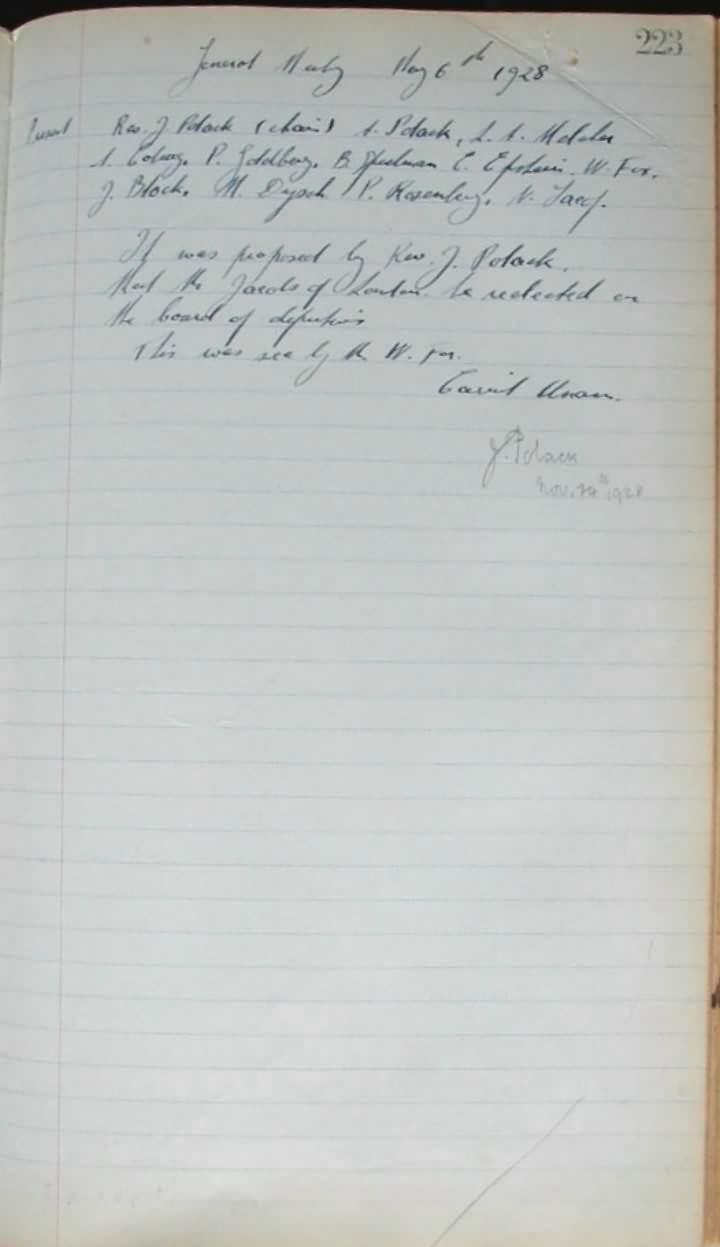 223
General Meeting May 6th 1928
Present Rev. J. Polack (chair) A. Polack, L. A.
P. Goldberg, B. E. Epstein. W. Fox.
J. Block, M. P. Rosenberg, N.
It was proposed by Rev. J. Polack.
that the Jacobs of London be reelected on
the board of deputies
This was sec by the W. Fox.
Carried Unam.
J. Polack
Nov. 1928